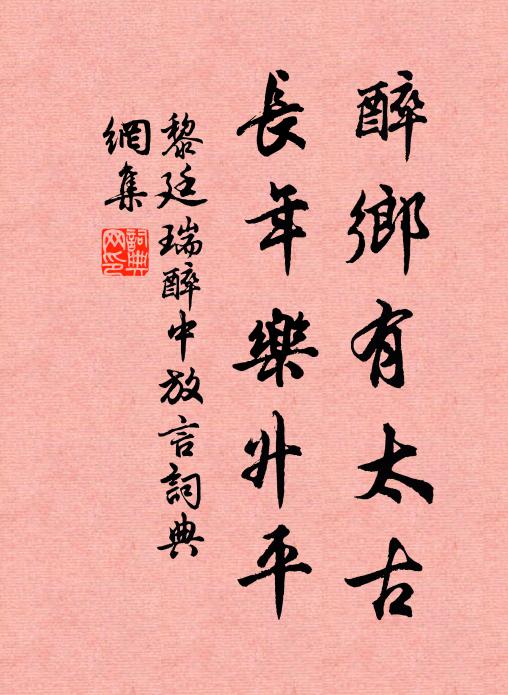 醉鄉有太古
長年樂升平
黎廷瑞醉中放言詞典
網集
詞典網印